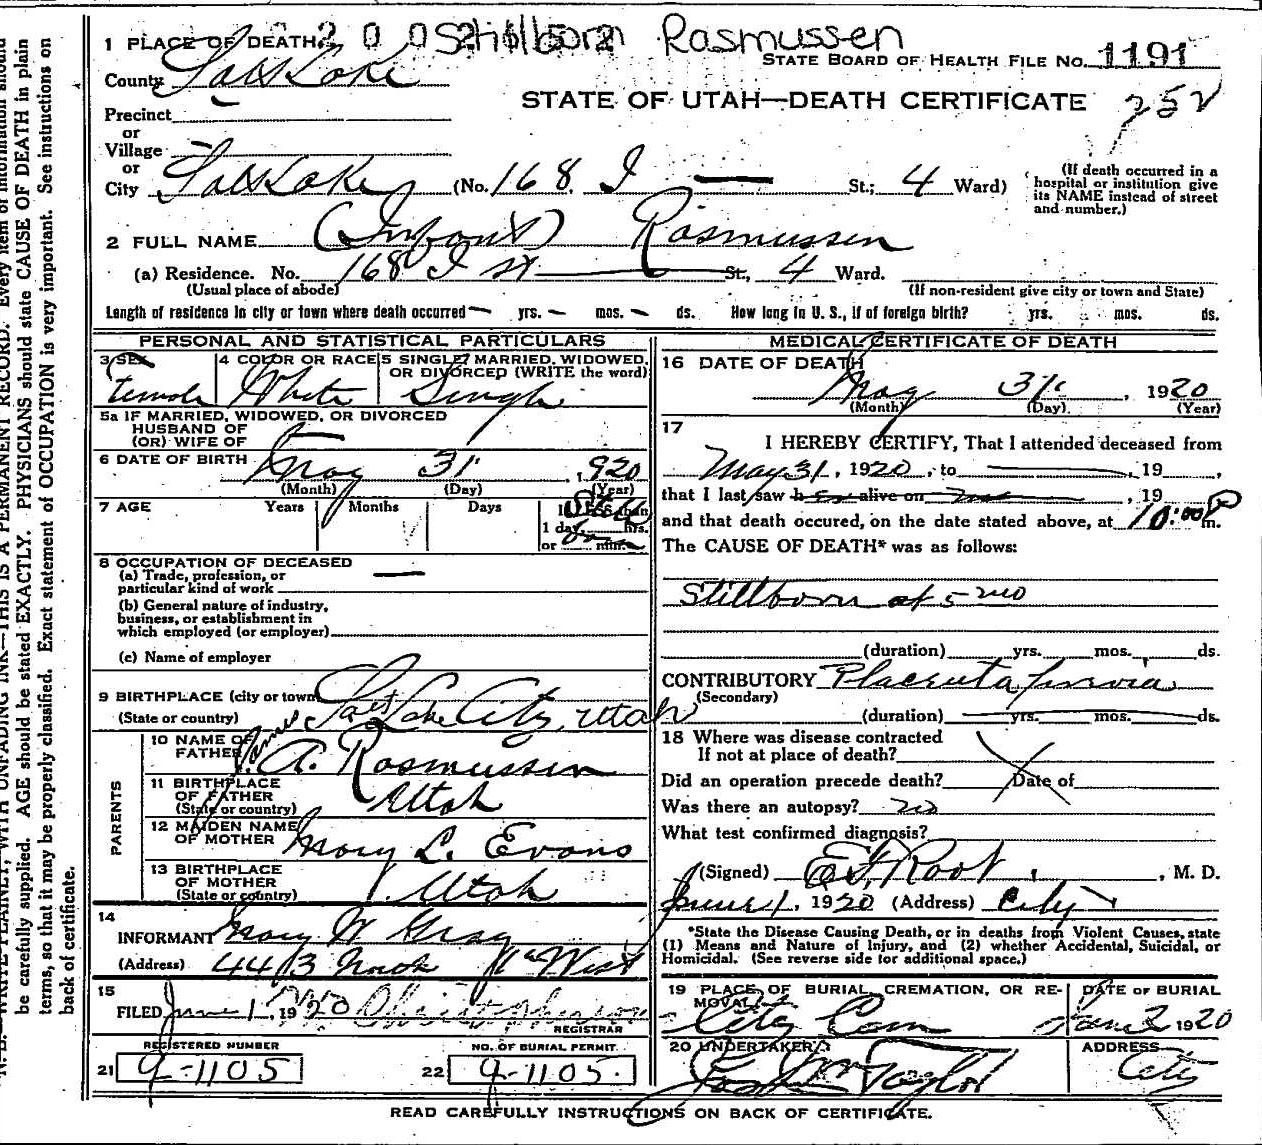 Stillborn Rasmussen
1 PLACE OF DEATH
STATE BOARD OF HEALTH FILE NO. 1191
County Salt Lake
STATE OF UTAH—DEATH CERTIFICATE 252
Precinct
or
Village —
or
City Salt Lake (No. 168 I — St.; 4 Ward)
(If death occurred in a hospital or institution give its NAME instead of street and number.)
2 FULL NAME (Infant) Rasmussen
(a) Residence. No. 168 I st St., 4 Ward.
(Usual place of abode) (If non-resident give city or town and State)
Length of residence in city or town where death occurred — yrs. — mos. — ds. How long in U. S., if of foreign birth? yrs. mos. ds.
PERSONAL AND STATISTICAL PARTICULARS
3 SEX 4 COLOR OR RACE 5 SINGLE, MARRIED, WIDOWED, OR DIVORCED (WRITE the word)
Female White Single
5a IF MARRIED, WIDOWED, OR DIVORCED
HUSBAND OF
(OR) WIFE OF —
6 DATE OF BIRTH May 31 1920
(Month) (Day) (Year)
7 AGE Years Months Days
1 day, hrs.
or min.
8 OCCUPATION OF DECEASED
(a) Trade, profession, or
particular kind of work —
(b) General nature of industry,
business, or establishment in
which employed (or employer)
(c) Name of employer
9 BIRTHPLACE (city or town)
(State or country) Salt Lake City, Utah
PARENTS
10 NAME OF
FATHER James A. Rasmussen
11 BIRTHPLACE
OF FATHER
(State or country) Utah
12 MAIDEN NAME
OF MOTHER Mary L. Evans
13 BIRTHPLACE
OF MOTHER
(State or country) Utah
14
INFORMANT Mary W. Gray
(Address)
15
FILED June 1, 1920
REGISTRAR
REGISTERED NUMBER NO. OF BURIAL PERMIT
21 9-1105 22 9-1105.
MEDICAL CERTIFICATE OF DEATH
16 DATE OF DEATH
May 31. , 1920
(Month) (Day) (Year)
17
I HEREBY CERTIFY, That I attended deceased from
May 31, 1920, to — , 19 ,
that I last saw h er alive on — , 19
and that death occured, on the date stated above, at 10:00 P m.
The CAUSE OF DEATH* was as follows:
Stillborn at 5 mo
(duration) yrs. mos. ds.
CONTRIBUTORY Placenta previa
(Secondary)
(duration) yrs. mos. ds.
18 Where was disease contracted
If not at place of death?
Did an operation precede death? Date of
Was there an autopsy? no
What test confirmed diagnosis?
(Signed) E. F. Root, M. D.
June 1, 1920 (Address) City
*State the Disease Causing Death, or in deaths from Violent Causes, state
(1) Means and Nature of Injury, and (2) whether Accidental, Suicidal, or
Homicidal. (See reverse side for additional space.)
19 PLACE OF BURIAL, CREMATION, OR RE-
MOVAL
City Cem
DATE OF BURIAL
June 2 1920
20 UNDERTAKER
Taylor
ADDRESS
City
READ CAREFULLY INSTRUCTIONS ON BACK OF CERTIFICATE.
WRITE PLAINLY, WITH UNFADING INK—THIS IS A PERMANENT RECORD. Every item of information should
be carefully supplied. AGE should be stated EXACTLY. PHYSICIANS should state CAUSE OF DEATH in plain
terms, so that it may be properly classified. Exact statement of OCCUPATION is very important. See instructions on
back of certificate.